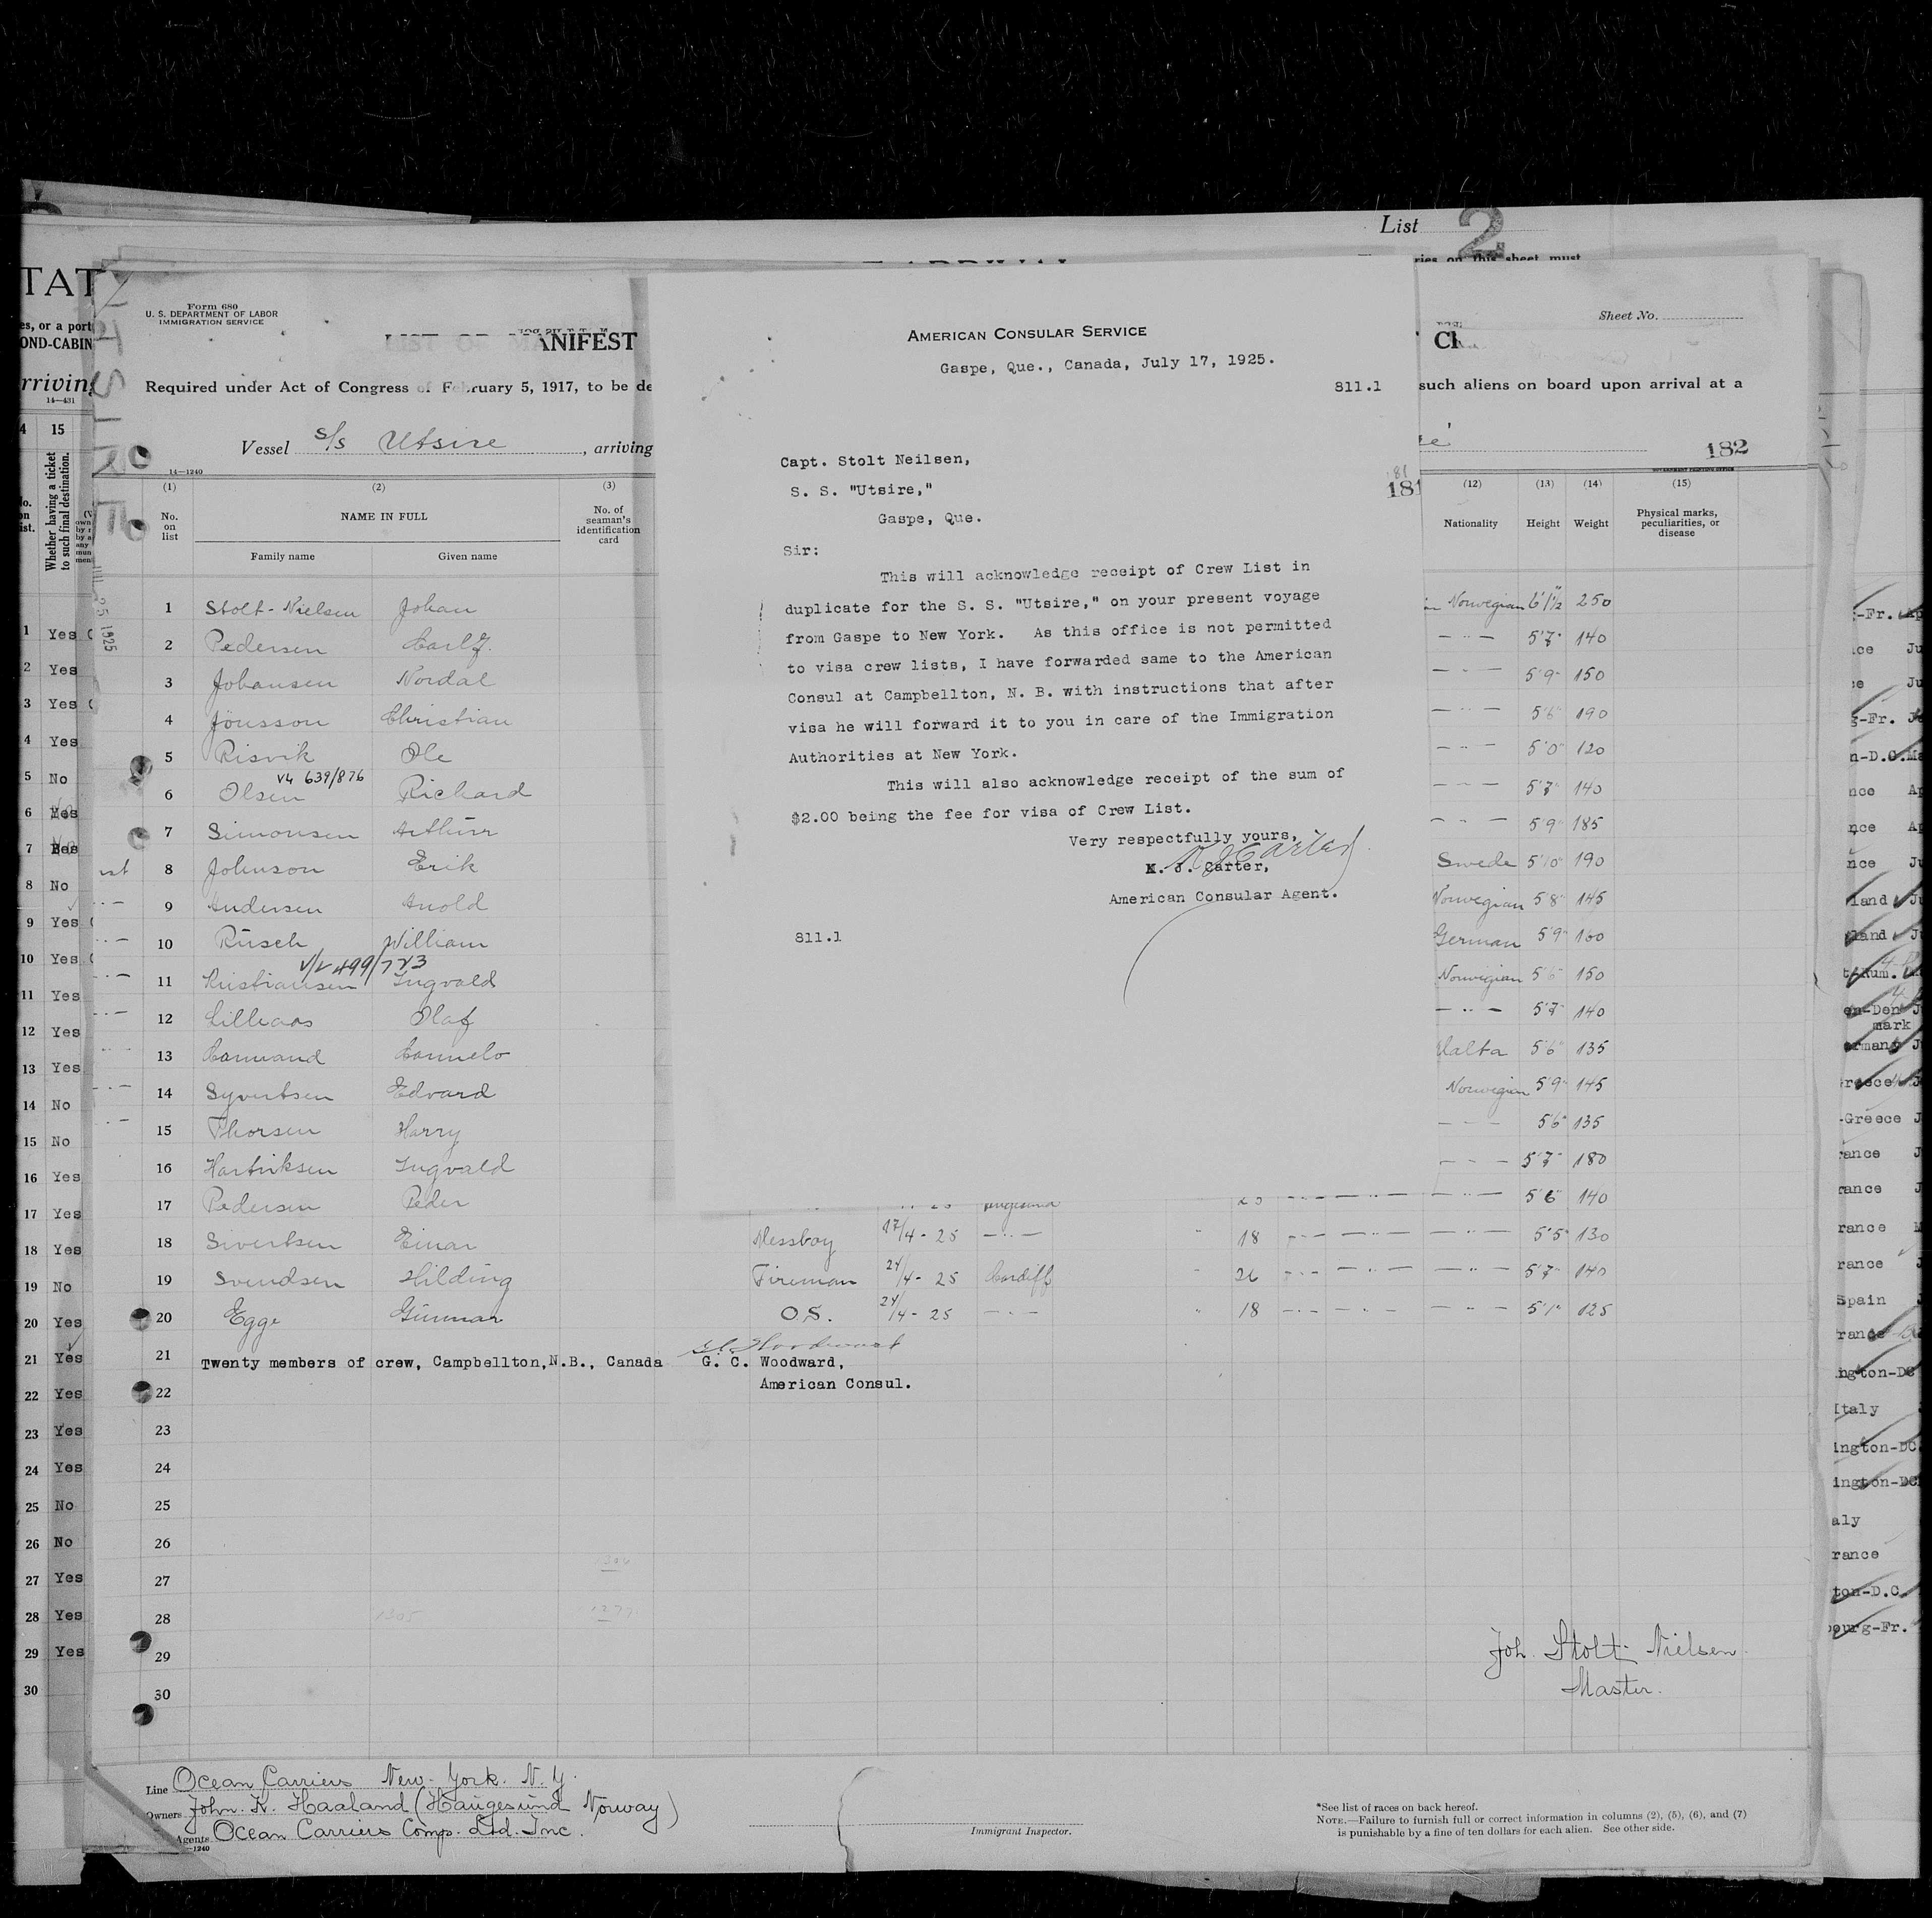 List 2
ries on this sheet must
TAT
es, or a port
OND-CABIN
rriving
14—431
Form 680
U. S. DEPARTMENT OF LABOR
IMMIGRATION SERVICE
LIST OF MANIFEST
Sheet No.
Required under Act of Congress of February 5, 1917, to be de
such aliens on board upon arrival at a
Vessel S/S Utsire, arriving
182
14—1240
AMERICAN CONSULAR SERVICE
Gaspe, Que., Canada, July 17, 1925.
811.1
Capt. Stolt Neilsen,
S. S. "Utsire,"
Gaspe, Que.
181
Sir:
This will acknowledge receipt of Crew List in
duplicate for the S. S. "Utsire," on your present voyage
from Gaspe to New York. As this office is not permitted
to visa crew lists, I have forwarded same to the American
Consul at Campbellton, N. B. with instructions that after
visa he will forward it to you in care of the Immigration
Authorities at New York.
This will also acknowledge receipt of the sum of
$2.00 being the fee for visa of Crew List.
Very respectfully yours,
K. J. Carter,
American Consular Agent.
811.1
(1) (2) (3) (12) (13) (14) (15)
No. on list
NAME IN FULL
Family name Given name
No. of seaman's identification card
Nationality Height Weight
Physical marks, peculiarities, or disease
1 Stolt-Nielsen Johan Norwegian 6'1½" 250
2 Pedersen Carl J. —"— 5'7" 140
3 Johansen Nordal —"— 5'9" 150
4 Jönsson Christian —"— 5'6" 190
5 Risvik Ole —"— 5'0" 120
V4 639/876
6 Olsen Richard —"— 5'7" 140
7 Simonsen Arthur —"— 5'9" 185
8 Johnson Erik Swede 5'10" 190
9 Andersen Arnold Norwegian 5'8" 145
10 Rüsch William German 5'9" 160
V/V 499/723
11 Kristiansen Ingvald Norwegian 5'6" 150
12 Lilleaas Olaf —"— 5'7" 140
13 Camelo Malta 5'6" 135
14 Syvertsen Edvard Norwegian 5'9" 145
15 Thorsen Harry —"— 5'6" 135
16 Ingvald —"— 5'7" 180
17 Pedersen Peder —"— 5'6" 140
18 Sivertsen Einar Messboy 17/4-25 —"— 18 —"— —"— —"— 5'5" 130
19 Svendsen Hilding Fireman 24/4-25 Cardiff 26 —"— —"— —"— 5'7" 140
20 Egge Gunnar O.S. 24/4-25 —"— 18 —"— —"— —"— 5'1" 125
21 Twenty members of crew, Campbellton,N.B., Canada G. C. Woodward,
22 American Consul.
23
24
25
26
27
28
29
30
Joh. Stolt-Nielsen
Master.
Line Ocean Carriers New-York. N.Y.
Owners John. K. Haaland (Haugesund Norway)
Agents Ocean Carriers Comp. Ltd. Inc.
—1240
Immigrant Inspector.
*See list of races on back hereof.
NOTE.—Failure to furnish full or correct information in columns (2), (5), (6), and (7)
is punishable by a fine of ten dollars for each alien. See other side.
15
Whether having a ticket to such final destination.
1 Yes
2 Yes
3 Yes
4 Yes
5 No
6 Yes
7
8 No
9 Yes
10 Yes
11 Yes
12 Yes
13 Yes
14 No
15 No
16 Yes
17 Yes
18 Yes
19 No
20 Yes
21 Yes
22 Yes
23 Yes
24 Yes
25 No
26 No
27 Yes
28 Yes
29 Yes
30